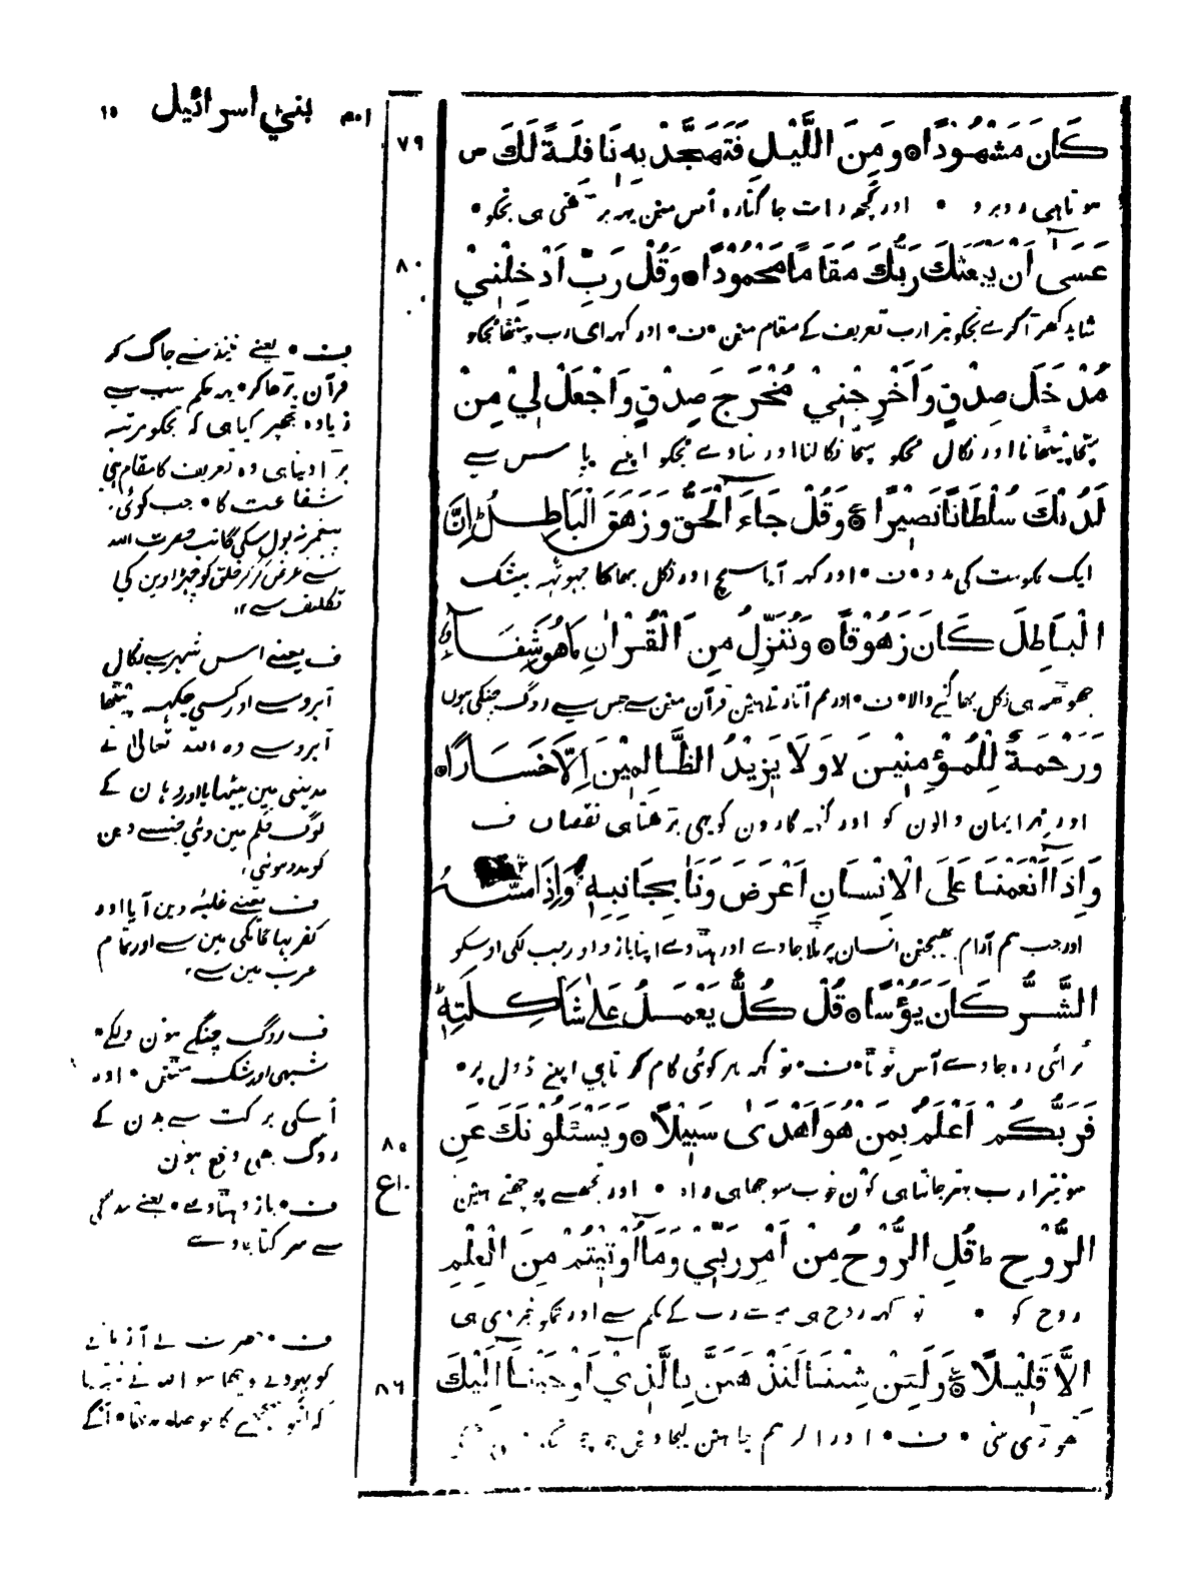 ١٥ بني اسرائيل
٧٩
كَانَ مَشْهُوْدًا۝ وَمِنَ اللَّيْلِ فَتَهَجَّدْ بِهٖ نَافِلَةً لَكَ ص
هوتاهی روبرو • اور کچھ رات جاگتا رہ اُس مین یہ بڑھتی هی تجکو •
٨٠
عَسٰىٓ اَنْ يَبْعَثَكَ رَبُّكَ مَقَامًا مَحْمُوْدًا۝ وَقُلْ رَبِّ اَدْخِلْنِيْ
شاید کھڑا کرے تجکو تیرا رب تعریف کے مقام مین • ف • اور کہہ ای رب پیٹھا مجکو
مُدْخَلَ صِدْقٍ وَاَخْرِجْنِيْ مُخْرَجَ صِدْقٍ وَاجْعَلْ لِيْ مِنْ
سچا پیٹھانا اور نکال مجکو سچا نکالنا اور بنا دے مجکو اپنے پاس سے
لَدُنْكَ سُلْطَانًا نَصِيْرًا۝ وَقُلْ جَاءَ الْحَقُّ وَزَهَقَ الْبَاطِلُ ط اِنَّ
ایک حکومت کی مدد • ف • اور کہہ آیا سچ اور نکل بھاگا جھوٹھہ بیشک
الْبَاطِلَ كَانَ زَهُوْقًا۝ وَنُنَزِّلُ مِنَ الْقُرْاٰنِ مَا هُوَ شِفَاءٌ
جھوٹھہ هی نکل بھاگنے والا • ف • اور هم اتارتے هین قرآن مین سے جس سے روگ چنگی هون
وَرَحْمَةٌ لِلْمُؤْمِنِيْنَ لا وَلَا يَزِيْدُ الظَّالِمِيْنَ اِلَّا خَسَارًا۝
اور مہر ایمان والون کو اور گنہ گارون کو یهی بڑھتا هی نقصان ف
وَاِذَا اَنْعَمْنَا عَلَى الْاِنْسَانِ اَعْرَضَ وَنَاٰ بِجَانِبِهٖ وَاِذَا مَسَّهُ
اور جب هم آرام بھیجین انسان پر ٹلا جاوے اور هٹاوے اپنا بازو اور جب لگی اوسکو
الشَّرُّ كَانَ يَؤُسًا۝ قُلْ كُلٌّ يَعْمَلُ عَلٰى شَاكِلَتِهٖ ط
برائی رہ جاوے آس ٹوٹا • ف • تو کہہ هر کوئی کام کرتا هی اپنے ڈول پر •
٨٥
فَرَبُّكُمْ اَعْلَمُ بِمَنْ هُوَ اَهْدٰى سَبِيْلًا۝ وَيَسْئَلُوْنَكَ عَنِ
١٠ع
سو تیرا رب بہتر جانتا هی کون خوب سوجھا هی راہ • اور تجھسے پوچھتے هین
الرُّوْحِ ط قُلِ الرُّوْحُ مِنْ اَمْرِ رَبِّيْ وَمَا اُوْتِيْتُمْ مِنَ الْعِلْمِ
روح کو • تو کہہ روح هی میرے رب کے حکم سے اور تمکو خبر دی هی
٨٦
اِلَّا قَلِيْلًا۝ وَلَئِنْ شِئْنَا لَنَذْهَبَنَّ بِالَّذِيْ اَوْحَيْنَا اِلَيْكَ
تھوڑی سی • ف • اور اگر هم چاهین لیجاوین جو چیز
ف • یعنے نیند سے جاگ کر
قرآن پڑھا کر • یہ حکم سب سے
زیادہ تجھپر کیا هی کہ تجکو مرتبہ
بڑا دینا هی وہ تعریف کا مقام هی
شفاعت کا • جب کوئی
پیغمبر نہ بول سکیگا تب حضرت اللہ
سے عرض کر کر خلق کو چھڑاوین گی
تکلیف سے ۱۱
ف یعنے اس شہر سے نکال
آبرو سے اور کسی جگہہ پیٹھا
آبرو سے وہ اللہ تعالیٰ نے
مدینی مین بیٹھایا اور وهان کے
لوگ حکم مین دئی جنسے دین
کو مدد هوئی •
ف یعنے غلبئہ دین آیا اور
کفر بھاگا مکی مین سے اور تمام
عرب مین سے •
ف روگ چنگے هون دلکے •
شبهی اور شک مٹین • اور
اُسکی برکت سے بدن کے
روگ بھی دفع هون
ف • بازو هٹاوے • یعنے بندگی
سے سر کتا جاوے
ف • حضرت کے آزمانے
کو یہود نے پوچھا سو اللہ نے نہ بتایا
کہ انکو سمجھنے کا حوصلہ نہ تھا • آگے